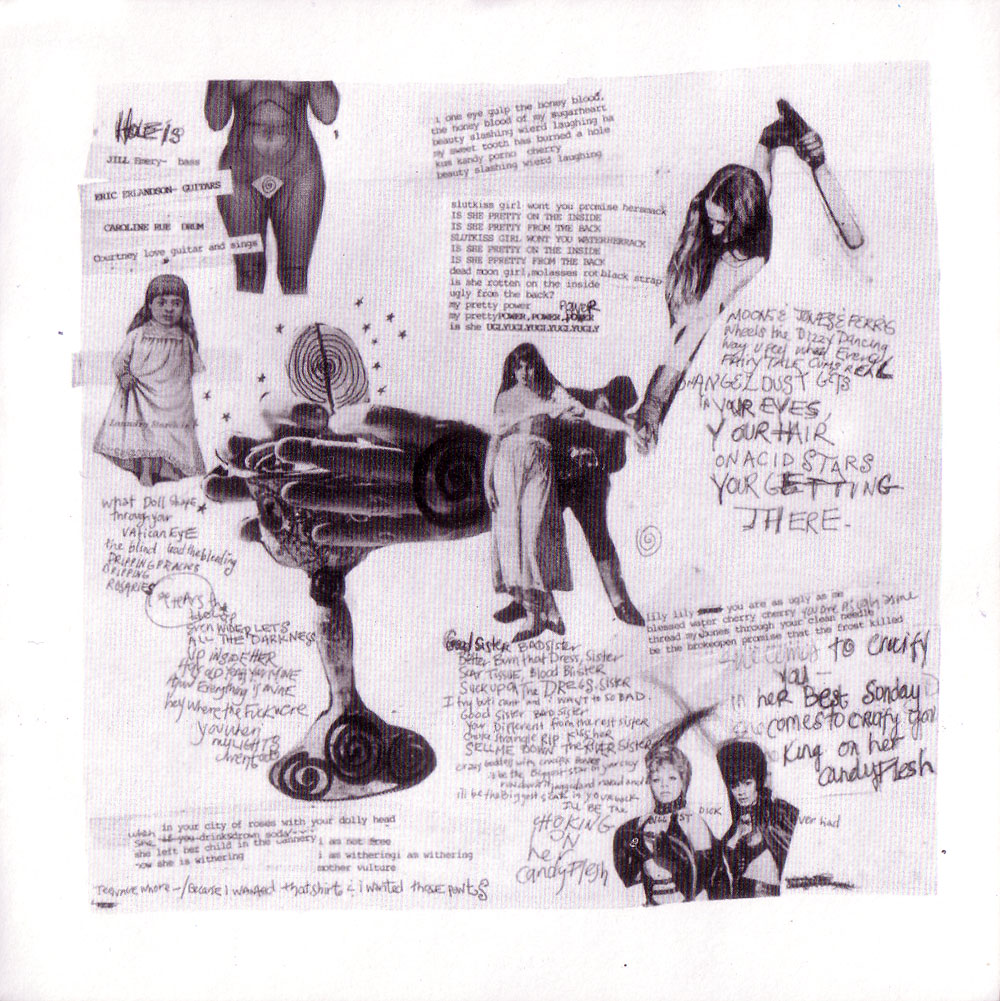 HOLE is
JILL Emery- bass
ERIC ERLANDSON- GUITARS
CAROLINE RUE DRUM
Courtney love guitar and sings
i one eye gulp the honey blood,
the honey blood of my sugarheart
beauty slashing wierd laughing ha
my sweet tooth has burned a hole
kum kandy porno cherry
beauty slashing wierd laughing
slutkiss girl wont you promise hersmack
IS SHE PRETTY ON THE INSIDE
IS SHE PRETTY FROM THE BACK
SLUTKISS GIRL WONT YOU WATERHERRACK
IS SHE PRETTY ON THE INSIDE
IS SHE PPRETTY FROM THE BACK
dead moon girl,molasses rot black strap
is she rotten on the inside
ugly from the back?
my pretty power POWER
my prettyPOWER,POWER,POWER
is she UGLYUGLYUGLYUGLYUGLY
MOONS & JONES & FERRIS
Wheels the Dizzy Dancing
Way U Feel when Every
FAIRY TALE Cums REAL
ANGEL DUST GETS
in YOUR EYES,
YOUR HAIR
ON ACID STARS
YOUR GETTING
THERE-
What Doll
through your
VATICAN EYE
the blind lead the bleeding
DRIPPING
DRIPPING
ROSARIES
she TEARS the
Even WIDER LETS
ALL THE DARKNESS
UP INSIDE HER
MINE
Everything is MINE
hey where the Fuck were
you when
my LIGHTS
went out
Good Sister BAD Sister
Better Burn that Dress, Sister
Scar Tissue, Blood Blister
Suck up on The DREGS, SISTER
I try but cant and i WANT to SO BAD.
Good sister BAD Sister
Your Different from the rest sister
RIP kiss her
SELL ME DOWN the RIVER SISTER
be the Biggest star in your
naked and
i'll be the Biggest scar in your back
I'll BE The
CHOKING
ON
her
Candy Flesh
lily lily you are as ugly as me you are as ugly as me
blessed water cherry cherry
thread my bones through your clean needle
be the brokeopen promise that the frost killed
she comes to crucify
you-
in her Best Sunday
she comes to crucify you
King on her
Candy Flesh
DICK
ever had
in your city of roses with your dolly head
when
she if you drinksdrown soda
she left her child in the cannery
now she is withering
i am not free
i am witheringi am withering
mother vulture
Teenage whore-/Because i wanted that shirt & i wanted those pants